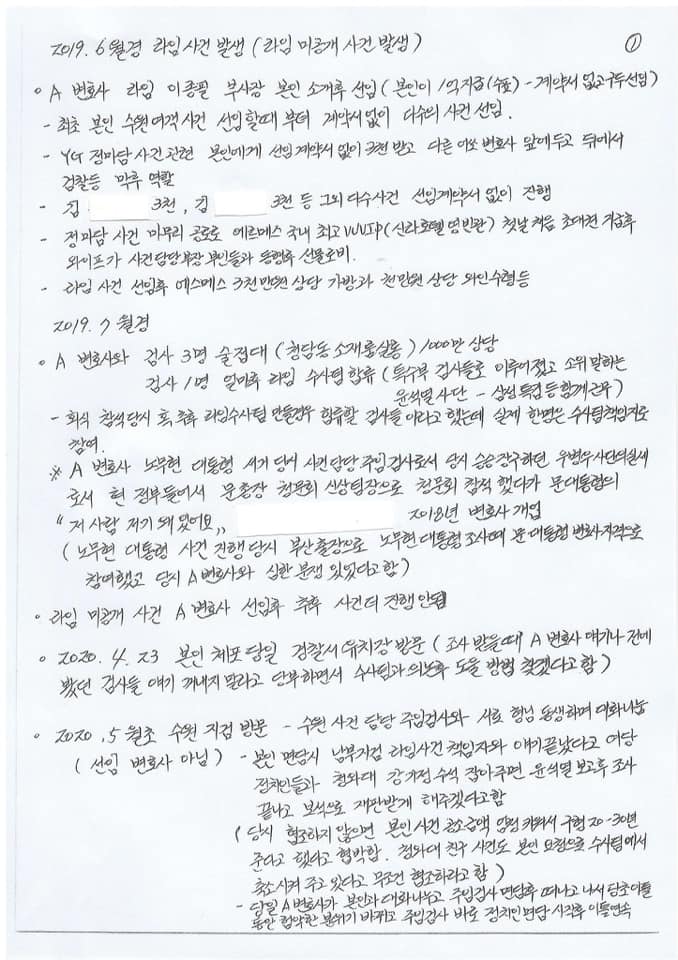 2019. 6월경 라임사건 발생 (라임 미공개 사건 발생) ①
○ A 변호사 라임 이종필 부사장 본인 소개후 선임 (본인이 1억지급(수표) - 계약서 없고 구두선임)
- 최초 본인 수원여객 사건 선임할때 부터 계약서없이 다수의 사건 선임.
- YG 정마담 사건 관련 본인에게 선임계약서 없이 3천 받고 다른 여쏘 변호사 앞에두고 뒤에서
검찰등 막후 역할
- 김 3천, 김 3천 등 그외 다수사건 선임계약서 없이 진행
- 정마담 사건 마무리 공로로 에르메스 국내 최고 VVVIP (신라호텔 영빈관) 첫날처음 초대권 지급후
와이프가 사건담당부장 부인들과 동행후 선물로비.
- 라임 사건 선임후 에스메스 3천만원 상당 가방과 천만원 상당 와인수령등
2019. 7월경
○ A 변호사와 검사 3명 술접대 (청담동 소재룸살롱) 1000만 상당
검사 1명 얼마후 라임 수사팀 합류 (특수부 검사들로 이루어졌고 소위 말하는
윤석열 사단 - 삼성 특검 등 함께 근무)
- 회식 참석당시 혹, 추후 라임수사팀 만들경우 합류할 검사들 이라고 했는데 실제 한명은 수사팀책임자로
참여.
※ A 변호사 노무현 대통령 서거 당시 사건담당 주임검사로서 당시 승승장구하던 우병우사단의실세
로서 현 정부들어서 문총장 청문회 신상팀장으로 청문회 참석 했다가 문대통령의
"저 사람 저기 왜 있어요,, 2018년 변호사 개업
(노무현 대통령 사건 진행당시 부산출장으로 노무현대통령조사때 문대통령 변호사자격으로
참여했고 당시 A변호사와 심한 분쟁 있었다고함)
○ 라임 미공개 사건 A 변호사 선임후 추후 사건더 진행 안됨
○ 2020. 4. 23 본인 체포당일 경찰서 유치장 방문 (조사 받을때 A변호사 얘기나 전에
봤던 검사들 얘기 꺼내지 말라고 당부하면서 수사팀과 의논후 도울 방법 찾겠다고함)
○ 2020. 5월초 수원 지검 방문 - 수원 사건 담당 주임검사와 서로 형님 동생하며 대화나눔
(선임 변호사 아님) - 본인 면담시 남부지검 라임사건 책임자와 얘기끝났다고 여당
정치인들과 청와대 강기정 수석 잡아주면 윤석열 보고후 조사
끝나고 보석으로 재판받게 해주겠다고함
(당시 협조하지 않으면 본인사건 공소금액 엄청 키워서 구형 20-30년
준다고 했다고 협박함. 청와대 친구 사건도 본인 요청으로 수사팀에서
축소시켜 주고있다고 무조건 협조하라고 함)
- 당일 A변호사가 본인과 대화나누고 주임검사 면담후 떠나고 나서 당초 이틀
동안 험악한 분위기 바뀌고 주임검사 바로 정치인면담 시작후 이틀연속